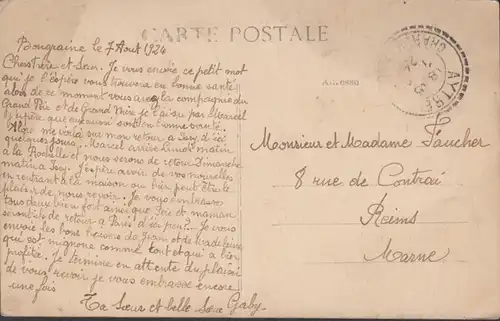 CARTE POSTALE
Bongraine le 7 Août 1924
Cher frère et Sœur. Je vous envoie ce petit mot
qui je l'espère vous trouvera en bonne santé
de ce moment vous avez la compagnie du
Grand Père et de Grand Mère je l'ai su par Marcel
j'espère que eux aussi sont en bonne santé.
Alors me voilà sur mon retour à Issy d'ici
quelques jours. Marcel arrive lundi matin
à la Rochelle et nous serons de retour Dimanche
matin à Issy. J'espère avoir de vos nouvelles
en rentrant à la maison ou bien peut être le
plaisir de nous revoir. Je vous embrasse
tous deux bien fort ainsi que Père et maman
seront-ils de retour à Paris d'ici peu? Je vous
envoie les bons baisers de Jean et de Madeleine
qui est mignonne comme tout et qui a bien
profité. je termine en attente du plaisir
de vous revoir je vous embrasse encore
une fois
Ta Sœur et belle Sœur Gaby
ADRESSE
AYTRÉ
Monsieur et Madame Faucher
8 rue de Contrai
Reims
Marne